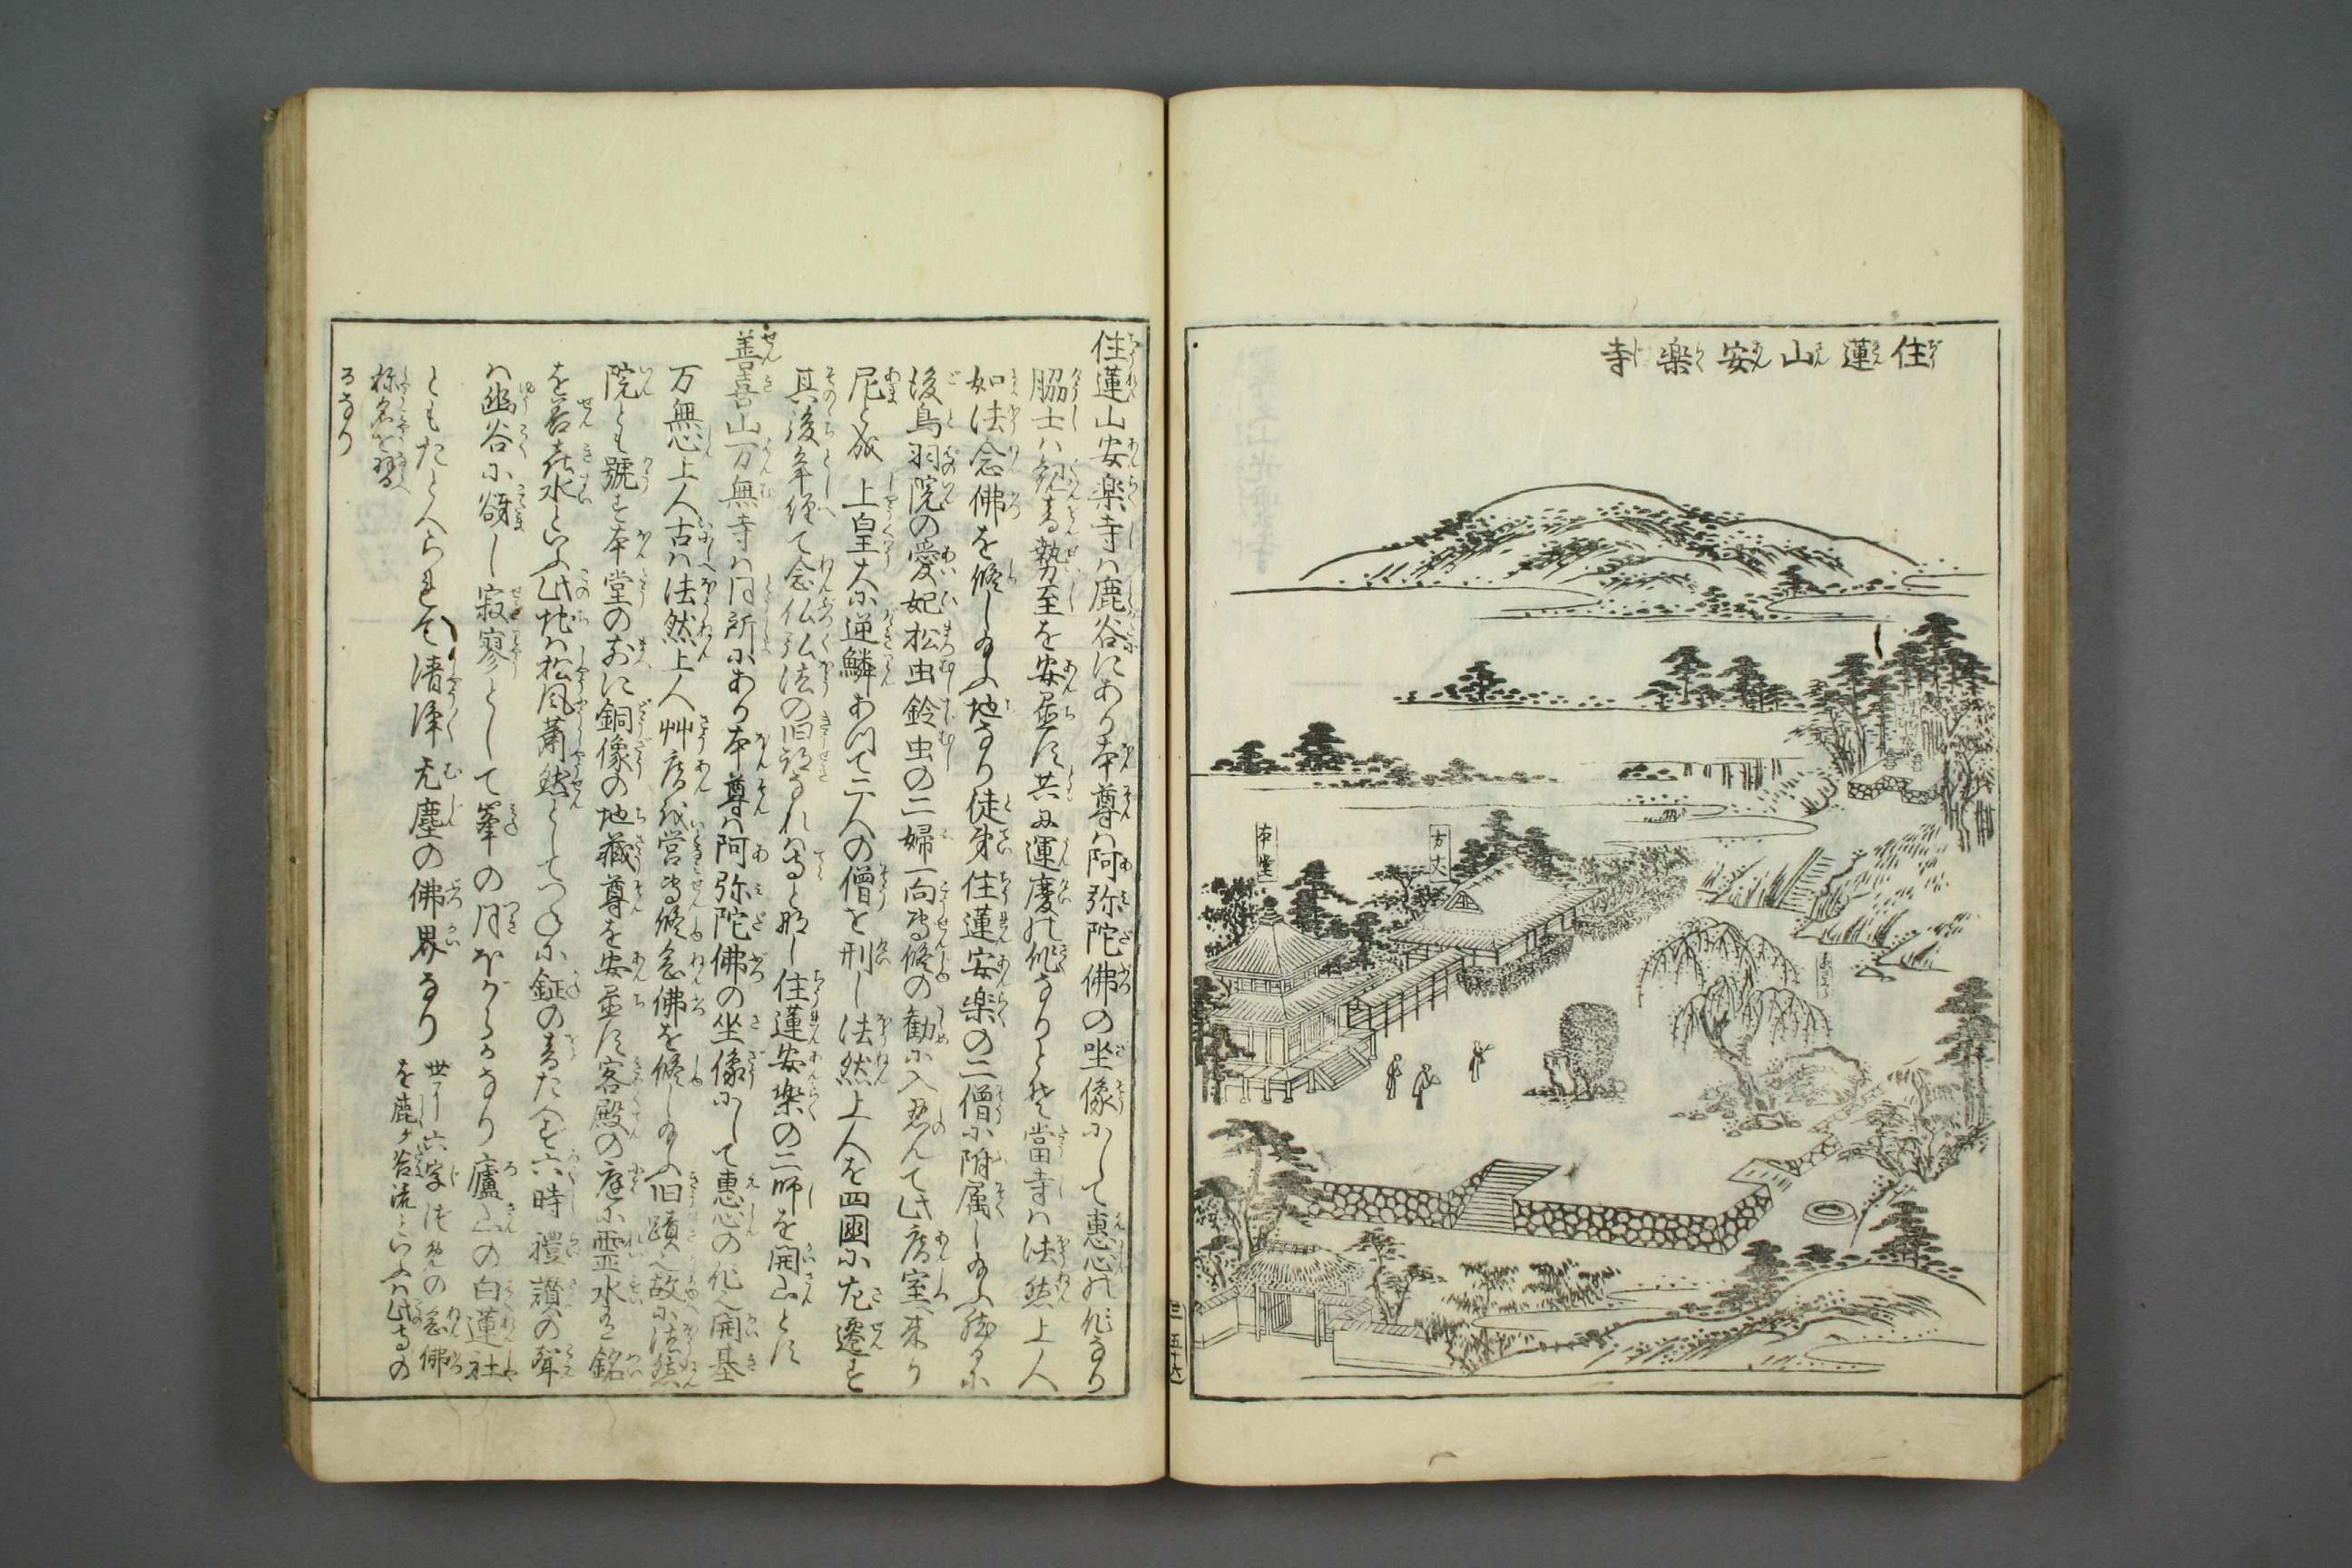 住蓮山安楽寺
本堂
方丈
三 五十六
住蓮山安楽寺ハ鹿谷にあり本尊ハ阿弥陀佛の坐像にして惠心の作なり
脇士ハ観音勢至を安置す共に運慶の作なりとぞ當寺ハ法然上人
如法念佛を修し給ふ地なり徒弟住蓮安楽の二僧に附属し給ふ然るに
後鳥羽院の愛妃松虫鈴虫の二婦一向専修の勧に入忍んて此庵室へ来り
尼と成 上皇大に逆鱗あつて二人の僧を刑し法然上人を四國に左遷す
其後年経て念仏弘法の旧跡なれハ寺と成し住蓮安楽の二師を開山とす
善喜山万無寺ハ同所にあり本尊ハ阿弥陀佛の坐像にして惠心の作也開基
万無心上人古ハ法然上人艸庵を営専修念佛を修し給ふ旧蹟也故に法然
院とも號す本堂のまへに銅像の地蔵尊を安置す客殿の庭に霊水有銘
を善喜水といふ此地ハ松風蕭然としてつねに鉦の音たへず六時禮讃の聲
ハ幽谷に谺し寂寥として峯の月ほがらかなり廬山の白蓮社
ともたとへられて清浄无塵の佛界なり
世に六字づめの念佛
を鹿ケ谷流といふハ此寺の
称名を習へ
るなり